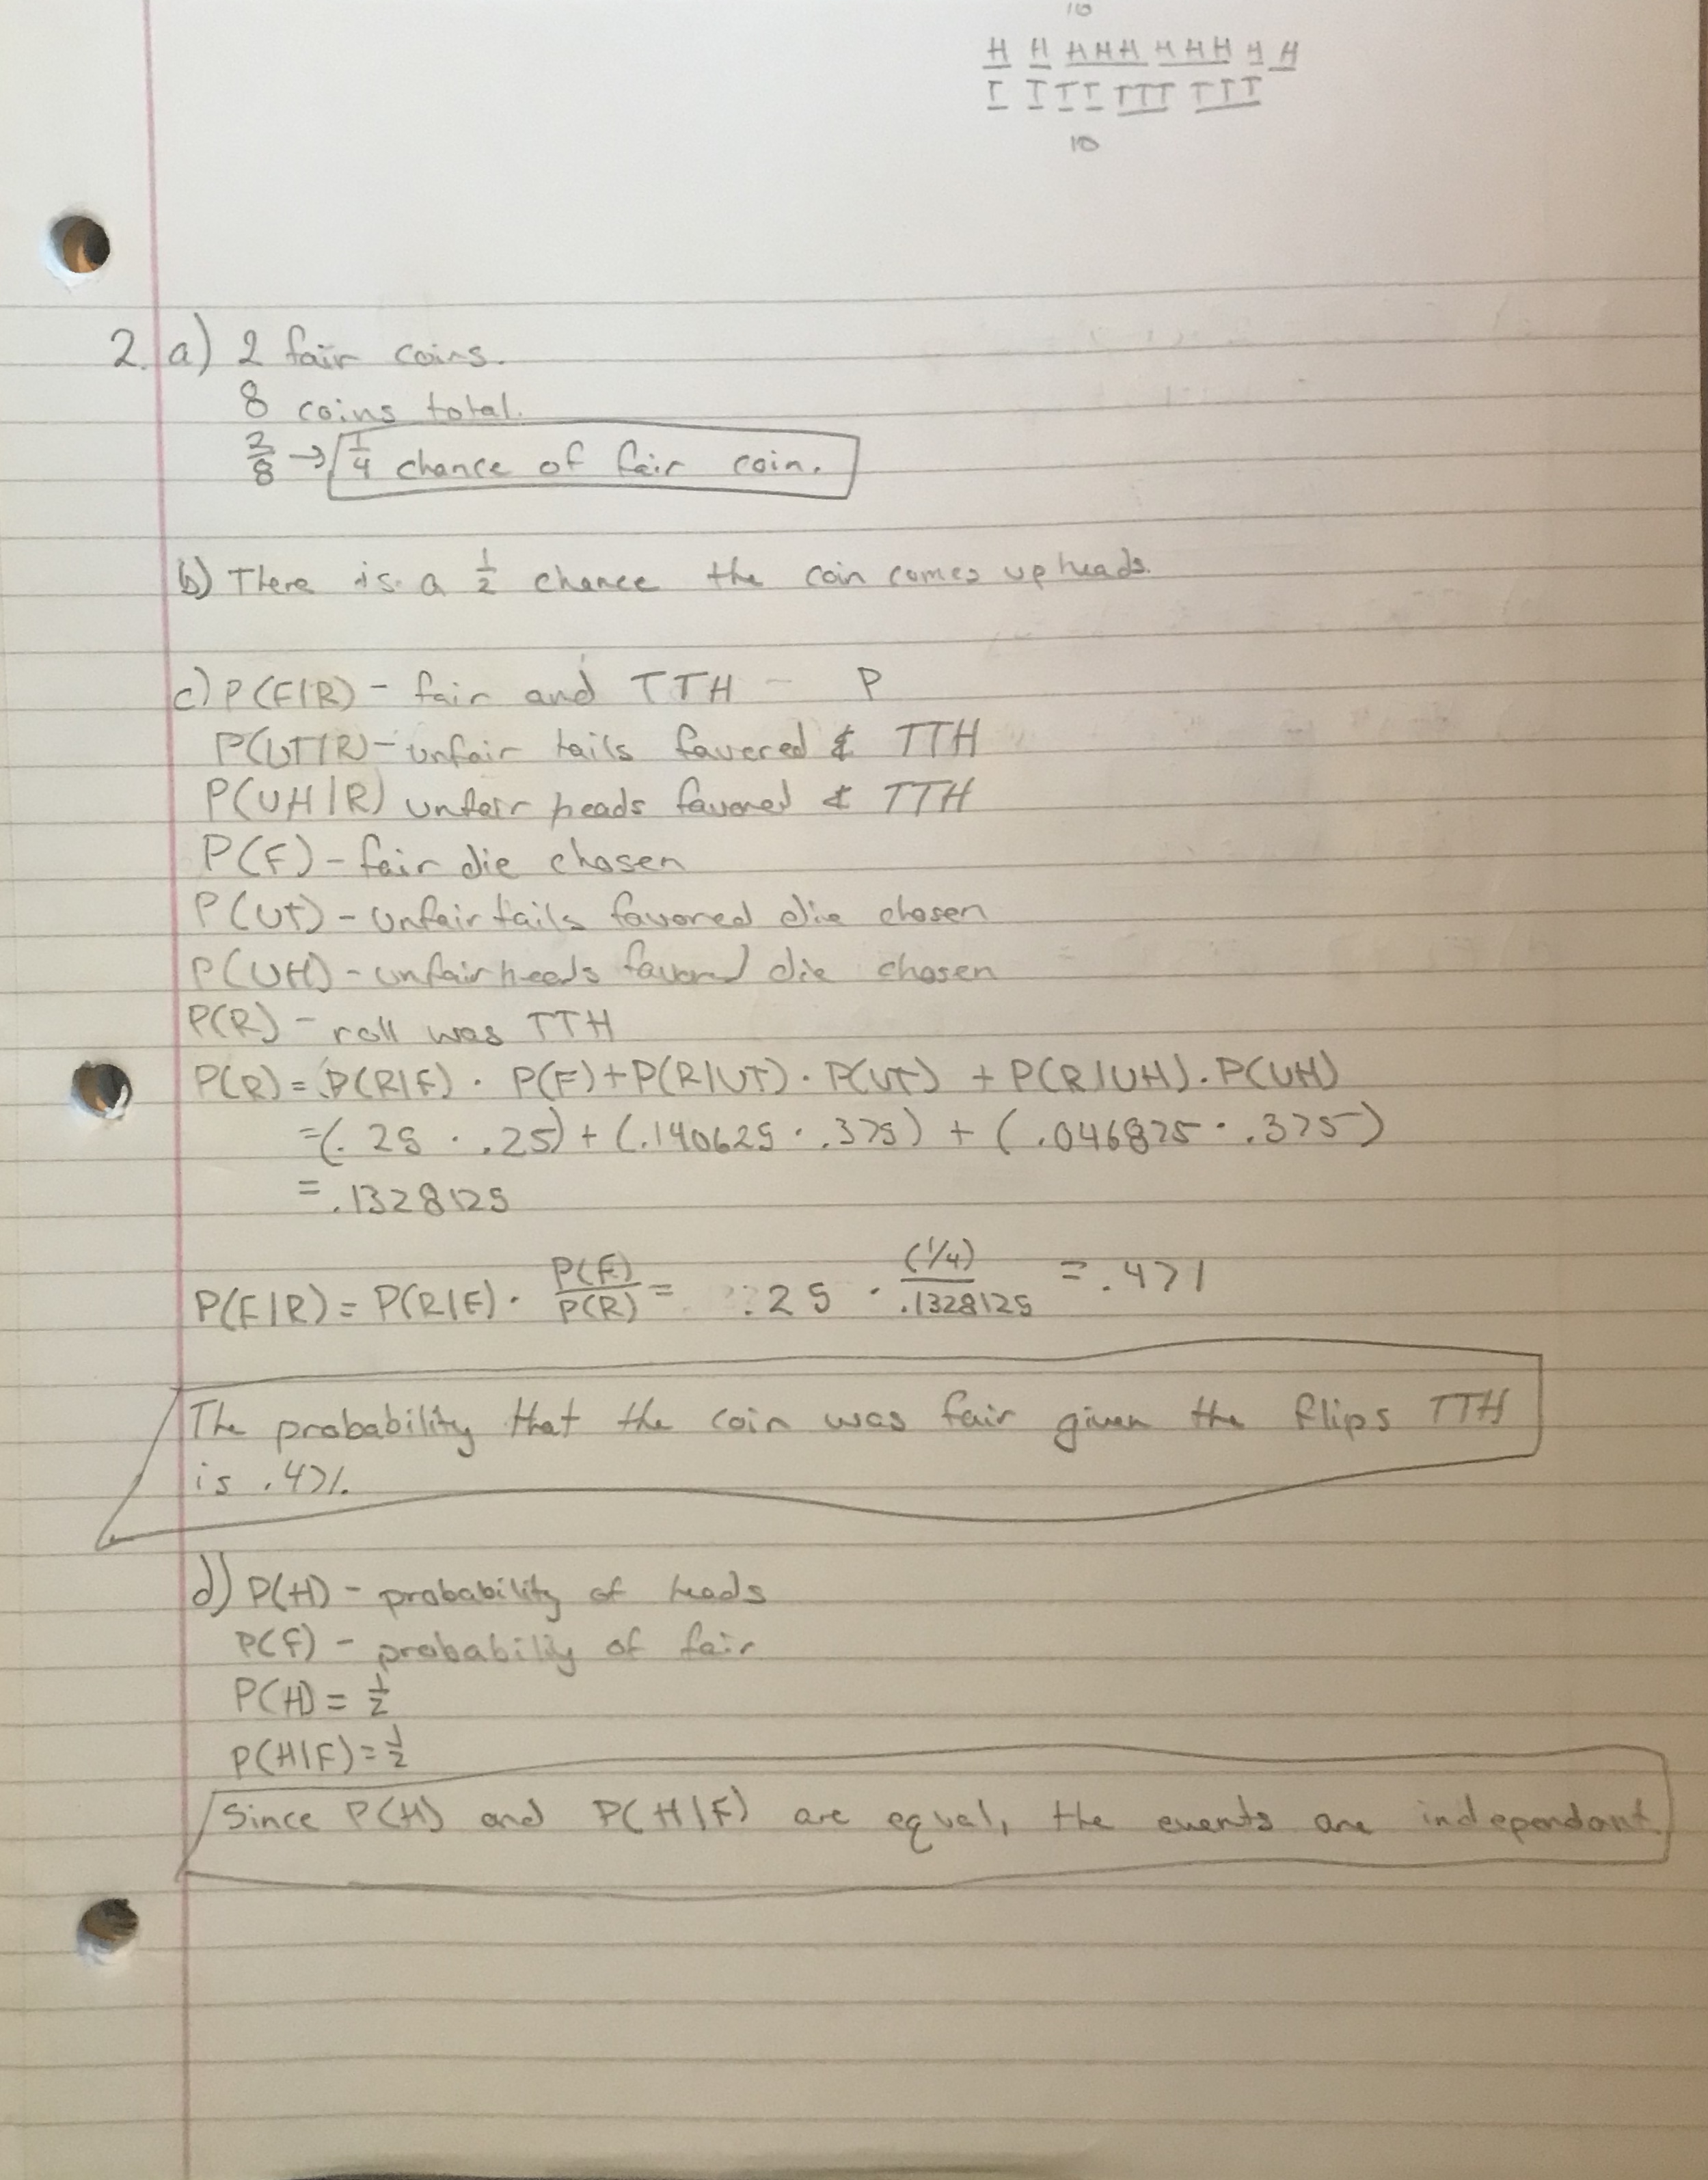 10
H H HHH HHH H H
T T T T TTT TTT
10
2. a) 2 fair coins.
8 coins total.
2/8 → 1/4 chance of fair coin.
b) There is a 1/2 chance the coin comes up heads.
c) P(F|R) - fair and TTH - P
P(UT|R) - unfair tails favored & TTH
P(UH|R) unfair heads favored & TTH
P(F) - fair die chosen
P(UT) - unfair tails favored die chosen
P(UH) - unfair heads favored die chosen
P(R) - roll was TTH
P(R) = P(R|F) · P(F) + P(R|UT) · P(UT) + P(R|UH) · P(UH)
= (.25 · .25) + (.140625 · .375) + (.046875 · .375)
= .1328125
P(F|R) = P(R|F) · P(F)/P(R) = .25 · (1/4)/.1328125 = .471
The probability that the coin was fair given the flips TTH
is .471.
d) P(H) - probability of heads
P(F) - probability of fair
P(H) = 1/2
P(H|F) = 1/2
Since P(H) and P(H|F) are equal, the events are independant.